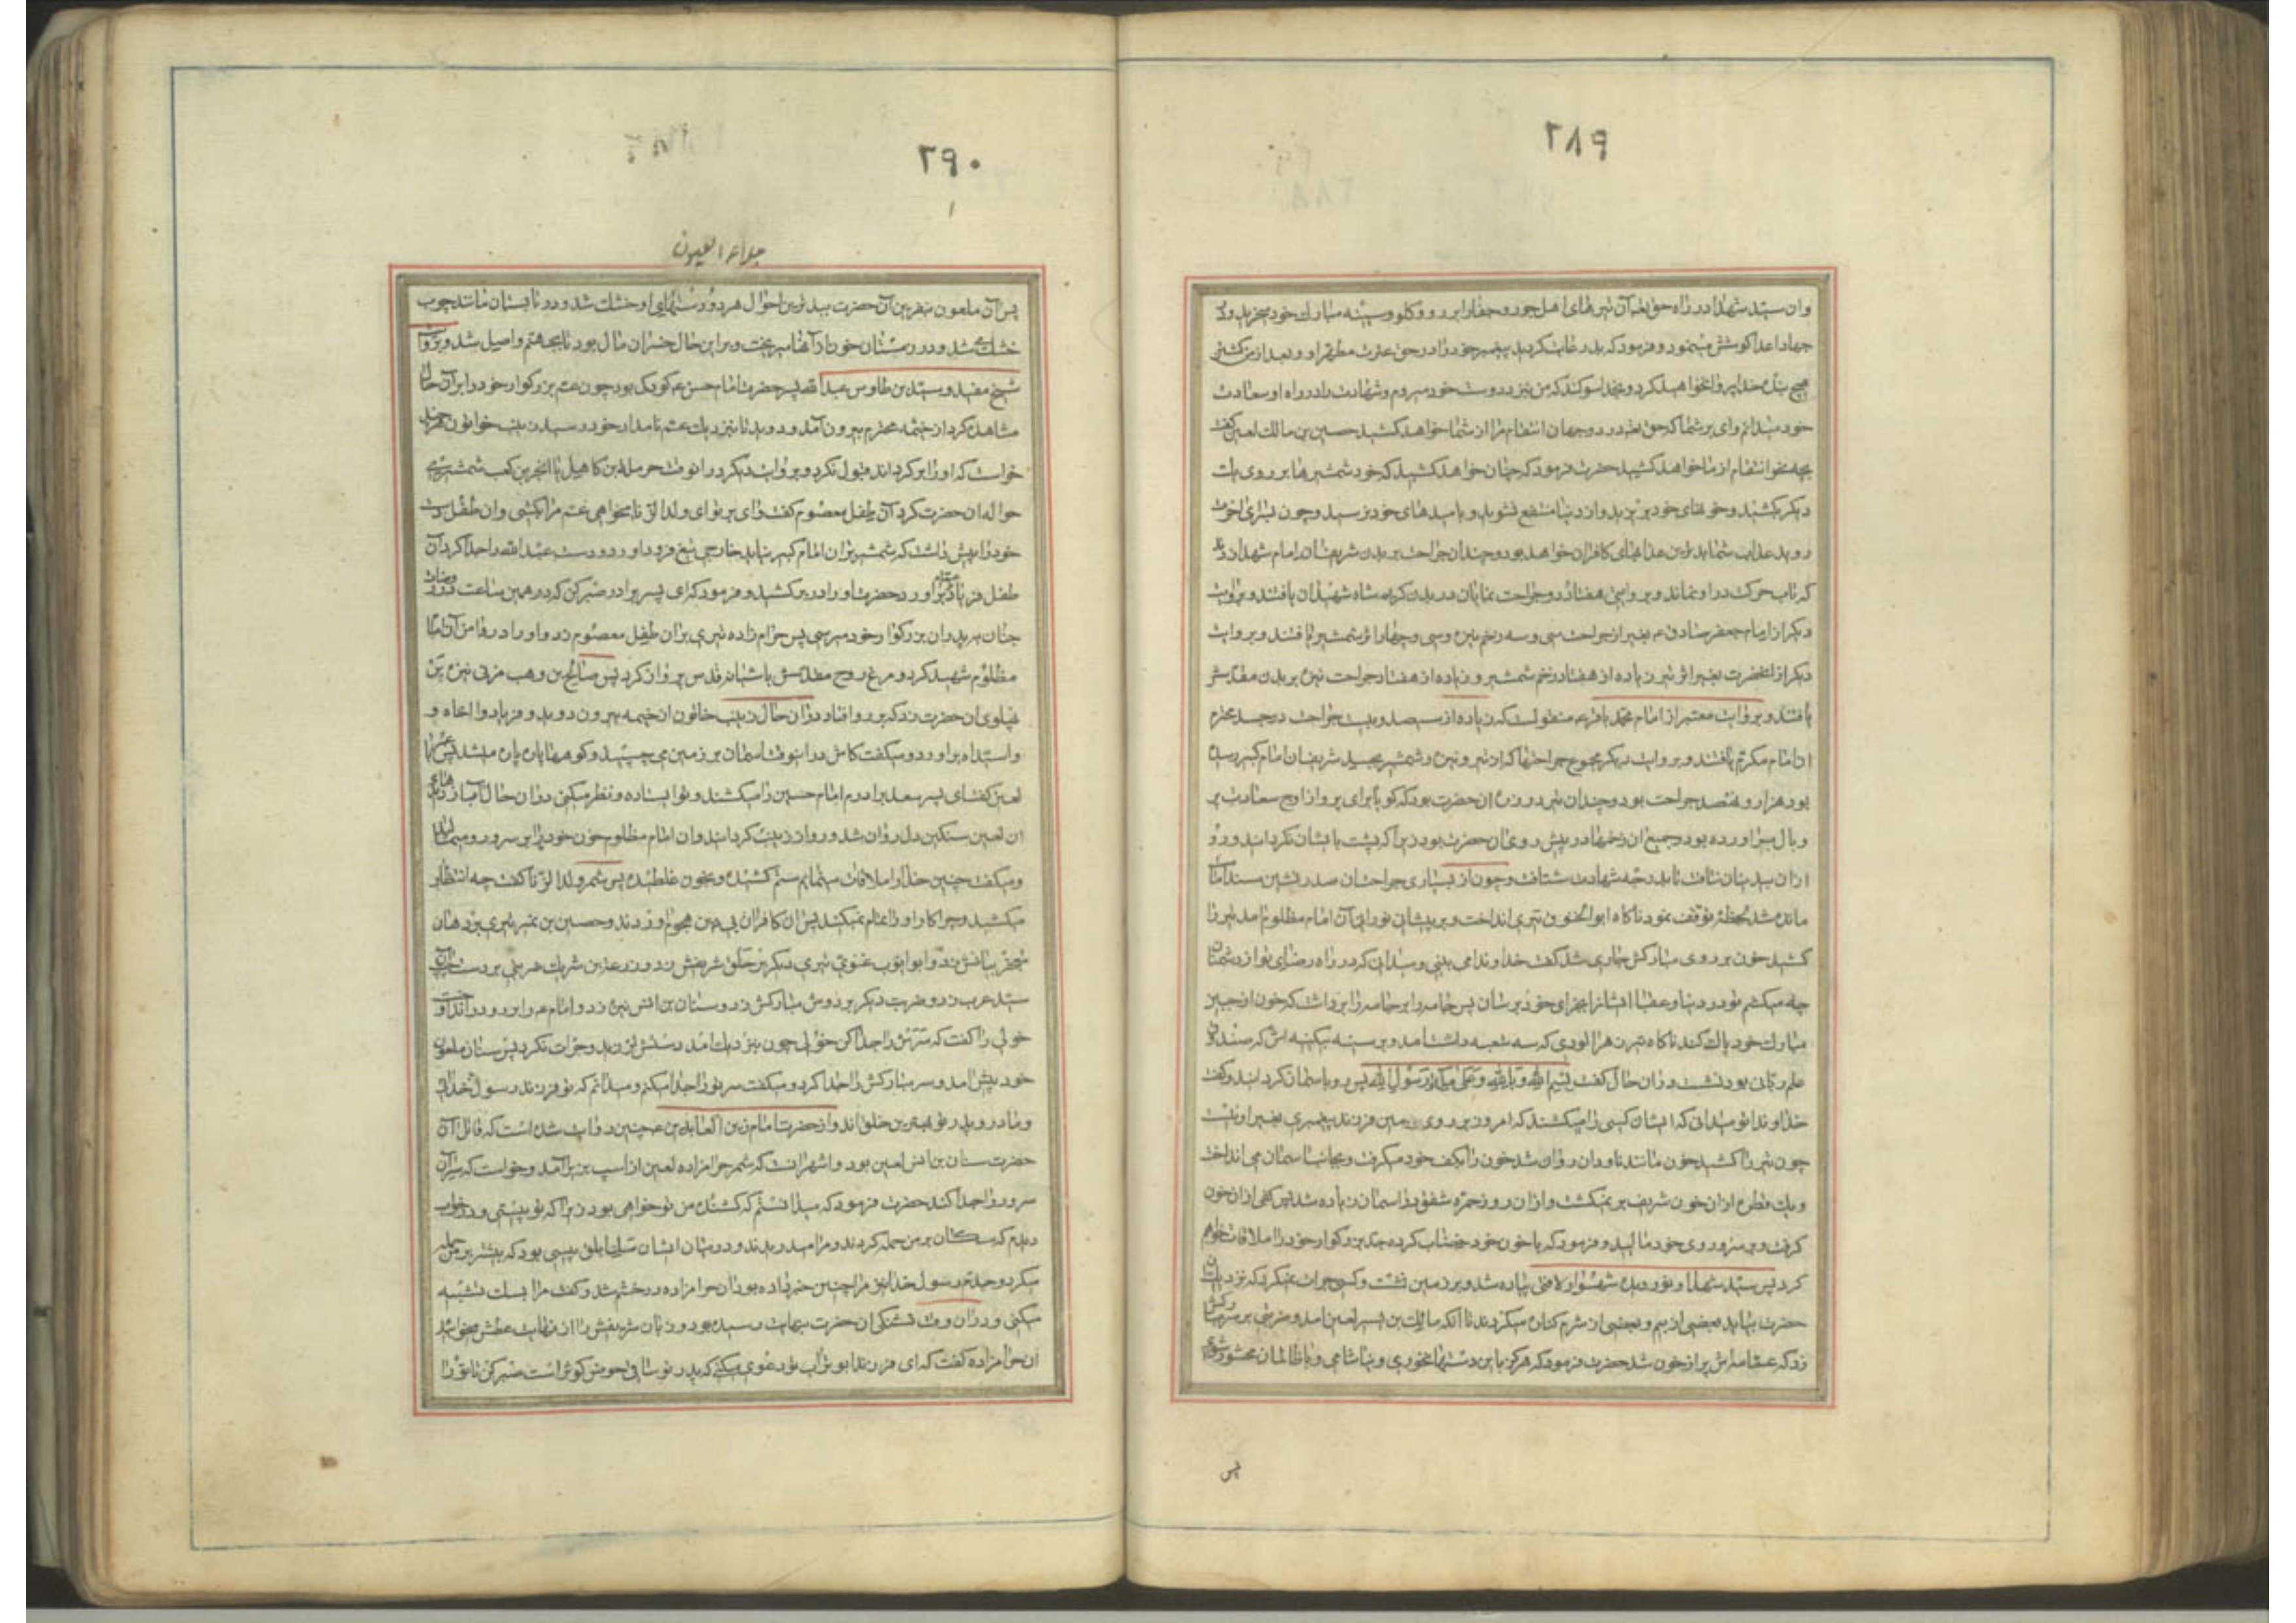 ۲۸۹
وان سید شهدا در راه حق تعالی آن تیرهای اهل جور و جفا را بر رو و گلو و سینه مبارک خود میخرید و در
جهاد اعدا کوشش مینمود و میفرمود که بد رعایت کردید پیغمبر خود را در حق عترت مطهر او و بعد از من کشتن
هیچ بنده خدا پروا نخواهید کرد و بخدا سوگند که من نیز در دوست خود میروم و شهادت را در راه او سعادت
خود میدانم وای بر شما که حق تعالی در دو جهان انتقام مرا از شما خواهد کشید حصین بن مالک لعین گفت
بچه نحو انتقام از ما خواهد کشید حضرت فرمود که چنان خواهد کشید که خود شمشیرها بر روی یک
دیگر بکشید و خونهای خود بریزید و از دنیا منتفع نشوید و بامیدهای خود نرسید و چون بسرای اخرت
روید عذاب شما بدترین عذابهای کافران خواهد بود و چندان جراحت بر بدن شریف ان امام شهدا زدند
که تاب حرکت در او نماند و بروایتی هفتاد و دو جراحت نمایان در بدن کریم شاه شهیدان یافتند و بروایت
دیگر از امام جعفر صادق ع بغیر از جراحت سی و سه زخم نیزه و سی و چهار اثر شمشیر یافتند و بروایت
دیگر از آنحضرت بغیر اثر تیر زیاده از هفتاد زخم شمشیر و زیاده از هفتاد جراحت نیزه بر بدن مقدسش
یافتند و بروایت معتبر از امام محمد باقر ع منقولست که زیاده از سیصد و بیست جراحت در جسد محترم
ان امام مکرم یافتند و بروایت دیگر مجموع جراحتها که از تیر و نیزه و شمشیر بجسد شریف ان امام کبیر رسیده
بود هزار و نهصد جراحت بود و چندان تیر در زره ان حضرت بود که گویا برای پرواز اوج سعادت پر
و بال برآورده بود و جمیع ان زخمها در پیش روی ان حضرت بود زیرا که پشت بایشان نگردانید و رو
ازان بیدینان نتافت تا بدرجه شهادت شتافت و چون از بسیاری جراحت ان صدر نشین مسند امامت
مانده شد لحظه توقف نمود ناگاه ابوالحنوق تیری انداخت و بر پیشانی نورانی آن امام مظلوم امد تیر را
کشید خون بر روی مبارکش جاری شد گفت خداوندا می بینی و میدانی که در راه رضای تو از دشمنان
چه میکشم تو در دنیا و عقبا ایشانرا بجزای خود برسان پس جامه را برداشت که خون از جبین
مبارک خود پاک کند ناگاه تیر زهرالودی که سه شعبه داشت امد و بر سینه بیکینه اش که صندوق
علم ربانی بود نشست در ان حال گفت بسم الله و بالله و علی ملة رسول الله پس رو باسمان گردانید و گفت
خداوندا تو میدانی که ایشان کسی را میکشند که امروز بر روی زمین فرزند پیغمبری بغیر او نیست
چون تیر را کشید خون مانند ناودان روان شد خون را بکف خود میگرفت و بجانب اسمان می انداخت
و یک قطره ازان خون شریف بر نمیگشت و ازان روز حمره شفق در اسمان زیاده شد پس کفی ازان خون
گرفت و بر سر و روی خود مالید و فرمود که باخون خود خضاب کرده جد بزرگوار خود را ملاقات خواهم
کرد پس سید شهدا و نور دیده شهسوار لافتی پیاده شد و بر زمین نشست و کسی جرات نمیکرد که نزدیک ان
حضرت بیاید بعضی از بیم و بعضی از شرم کناره میکردند تا آنکه مالک بن یسر لعین امد و ضربتی بر سر مبارکش
زد که عمامه اش پر از خون شد حضرت فرمود که هرگز باین دستها نخوری و نیاشامی و با ظالمان محشور شوی
پس
۲۹۰
جلاء العیون
پس آن ملعون بنفرین آن حضرت ببدترین احوال هر دو دستهای او خشک شد و در تابستان مانند چوب
خشک می شد و در زمستان خون از آنها میریخت و بر این حال خسران مآل بود تا بجهنم واصل شد و بروایت
شیخ مفید و سید بن طاوس عبدالله پسر حضرت امام حسن ع کودک بود چون عم بزرگوار خود را بر آن حال
مشاهده کرد از خیمه محترم بیرون آمد و دوید تا بنزدیک عم نامدار خود رسید زینب خاتون هر چند
خواست که او را برگرداند قبول نکرد و بروایت دیگر در انوقت حرملة بن کاهل یا ابجر بن کعب شمشیری
حواله ان حضرت کرد آن طفل معصوم گفت وای بر تو ای ولدالزنا میخواهی عم مرا بکشی و ان طفل دست
خود را پیش داشت که شمشیر بران امام کبیر نیاید خارجی تیغ فرود اورد و دست عبدالله را جدا کرد آن
طفل فریاد یا عماه براورد حضرت او را در بر کشید و فرمود که ای پسر برادر صبر کن که در همین ساعت در روضات
جنان بپدران بزرگوار خود میرسی پس حرام زاده تیری بران طفل معصوم زد و او را در دامن آن امام
مظلوم شهید کرد و مرغ روح مطهرش باشیانه قدس پرواز کرد پس صالح بن وهب مزنی نیزه بر
پهلوی ان حضرت زد که برو افتاد دران حال زینب خاتون از خیمه بیرون دوید و فریاد وا اخاه و
وا سیداه براورد و میگفت کاش در اینوقت اسمان بر زمین می چسپید و کوهها پاره پاره میشد پس عمر را
لعین گفت ای پسر سعد برادرم امام حسین را میکشند و تو ایستاده و نظر میکنی دران حال آب از دیدهای
ان لعین سنگین دل روان شد و رو از زینب گردانید و ان امام مظلوم خون خود را بر سر و رو میمالید
و میگفت چنین خدا را ملاقات مینمایم ستم کشیده و بخون غلطیده پس شمر ولدالزنا گفت چه انتظار
میکشید و چرا کار او را تمام نمیکنید پس ان کافران بی دین هجوم اوردند و حصین بن نمیر تیری بر دهان
معجز بیانش زد و ابوایوب غنوی تیری دیگر بر حلق شریفش زد و زرعة بن شریک ضربتی بر دست چپ آن
سید عرب زد و ضربت دیگر بر دوش مبارکش زد و سنان بن انس نیزه زد و امام ع را برو در انداخت و
خولی را گفت که سرش را جدا کن خولی چون بنزدیک امد دستش لرزید و جرات نکرد پس سنان ملعون
خود پیش امد و سر مبارکش را جدا کرد و میگفت سر تو را جدا میکنم و میدانم که تو فرزند رسول خدائی
و مادر و پدر تو بهترین خلق اند و از حضرت امام زین العابدین ع چنین روایت شده است که قاتل آن
حضرت سنان بن انس لعین بود و اشهر انست که شمر حرامزاده لعین از اسپ بزیر آمد و خواست که سر آن
سرور را جدا کند حضرت فرمود که میدانستم که کشنده من تو خواهی بود زیرا که تو پیسی و در خواب
دیدم که سگان بر من حمله کردند و مرا میدریدند و در میان ایشان سگ ابلق پیسی بود که بیشتر بر من حمله
میکرد و جدم رسول خدا نیز مرا چنین خبر داده بود آن حرامزاده در خشم شد و گفت مرا بسگ تشبیه
میکنی و دران وقت تشنگی ان حضرت بنهایت رسیده بود و زبان شریفش را از نهایت عطش میخوائید
آن حرامزاده گفت که ای فرزند ابوتراب تو دعوی میکنی که پدر تو ساقی حوض کوثر است صبر کن تا تو را